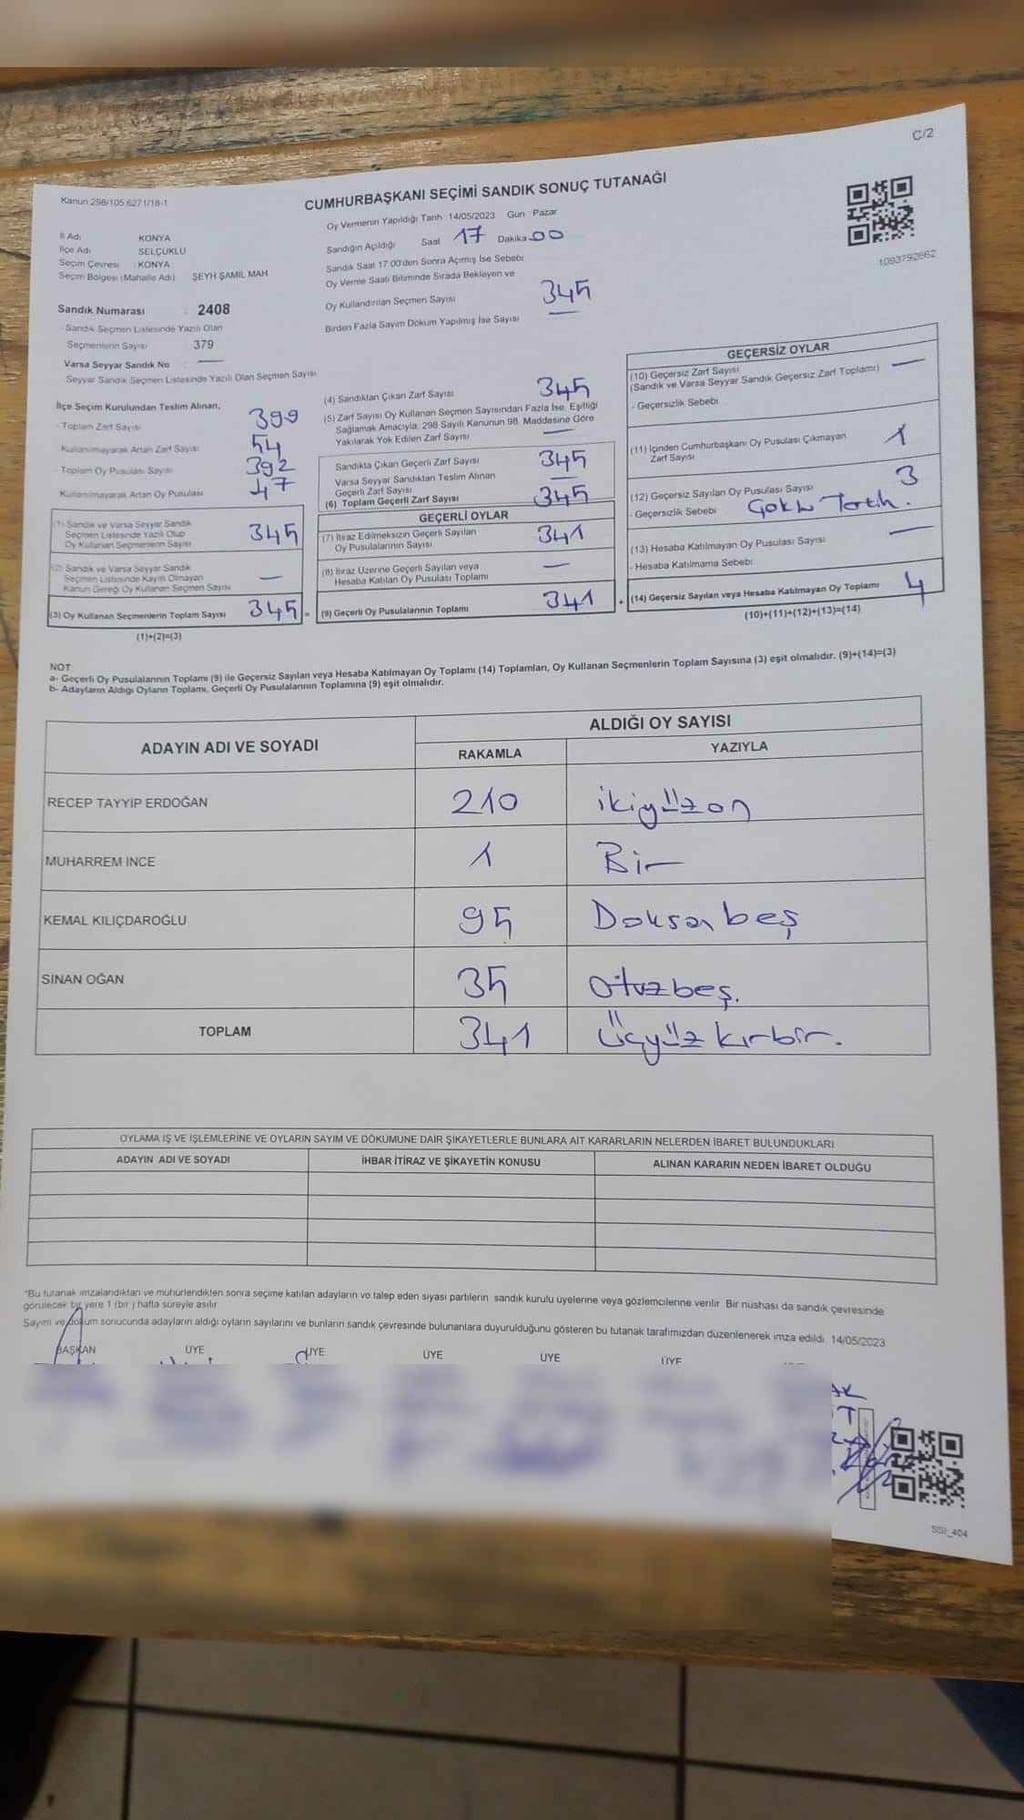 C/2
Kanun 298/105 6271/18-1
CUMHURBAŞKANI SEÇİMİ SANDIK SONUÇ TUTANAĞI
Oy Vermenin Yapıldığı Tarih 14/05/2023 Gün Pazar
İl Adı KONYA
İlçe Adı SELÇUKLU
Seçim Çevresi : KONYA
Seçim Bölgesi (Mahalle Adı) ŞEYH ŞAMİL MAH
Sandığın Açıldığı Saat 17 Dakika 00
Sandık Saat 17:00'den Sonra Açımış İse Sebebi
Oy Verme Saati Bitiminde Sırada Bekleyen ve
Oy Kullandırılan Seçmen Sayısı 345
Birden Fazla Sayım Döküm Yapılmış İse Sayısı —
1093792662
Sandık Numarası : 2408
- Sandık Seçmen Listesinde Yazılı Olan
Seçmenlerin Sayısı 379
Varsa Seyyar Sandık No —
Seyyar Sandık Seçmen Listesinde Yazılı Olan Seçmen Sayısı
İlçe Seçim Kurulundan Teslim Alınan,
- Toplam Zarf Sayısı 399
Kullanılmayarak Artan Zarf Sayısı 54
- Toplam Oy Pusulası Sayısı 392
Kullanılmayarak Artan Oy Pusulası 47
(1) Sandık ve Varsa Seyyar Sandık
Seçmen Listesinde Yazılı Olup
Oy Kullanan Seçmenlerin Sayısı 345
(2) Sandık ve Varsa Seyyar Sandık
Seçmen Listesinde Kayıtlı Olmayan
Kanun Gereği Oy Kullanan Seçmen Sayısı —
(3) Oy Kullanan Seçmenlerin Toplam Sayısı 345 =
(1)+(2)=(3)
(4) Sandıktan Çıkan Zarf Sayısı 345
(5) Zarf Sayısı Oy Kullanan Seçmen Sayısından Fazla İse, Eşitliği
Sağlamak Amacıyla, 298 Sayılı Kanunun 98. Maddesine Göre
Yakılarak Yok Edilen Zarf Sayısı —
Sandıkta Çıkan Geçerli Zarf Sayısı 345
Varsa Seyyar Sandıktan Teslim Alınan
Geçerli Zarf Sayısı —
(6) Toplam Geçerli Zarf Sayısı 345
GEÇERLİ OYLAR
(7) İtiraz Edilmeksizin Geçerli Sayılan
Oy Pusulalarının Sayısı 341
(8) İtiraz Üzerine Geçerli Sayılan veya
Hesaba Katılan Oy Pusulası Toplamı —
(9) Geçerli Oy Pusulalarının Toplamı 341 +
GEÇERSİZ OYLAR
(10) Geçersiz Zarf Sayısı
(Sandık ve Varsa Seyyar Sandık Geçersiz Zarf Toplamı) —
- Geçersizlik Sebebi
(11) İçinden Cumhurbaşkanı Oy Pusulası Çıkmayan
Zarf Sayısı 1
(12) Geçersiz Sayılan Oy Pusulası Sayısı 3
- Geçersizlik Sebebi
(13) Hesaba Katılmayan Oy Pusulası Sayısı —
- Hesaba Katılmama Sebebi
(14) Geçersiz Sayılan veya Hesaba Katılmayan Oy Toplamı 4
(10)+(11)+(12)+(13)=(14)
NOT
a- Geçerli Oy Pusulalarının Toplamı (9) ile Geçersiz Sayılan veya Hesaba Katılmayan Oy Toplamı (14) Toplamları, Oy Kullanan Seçmenlerin Toplam Sayısına (3) eşit olmalıdır. (9)+(14)=(3)
b- Adayların Aldığı Oyların Toplamı, Geçerli Oy Pusulalarının Toplamına (9) eşit olmalıdır.
ADAYIN ADI VE SOYADI ALDIĞI OY SAYISI
RAKAMLA YAZIYLA
RECEP TAYYİP ERDOĞAN 210 ikiyüzon
MUHARREM İNCE 1 Bir
KEMAL KILIÇDAROĞLU 95 Doksanbeş
SİNAN OĞAN 35 otuzbeş.
TOPLAM 341 Üçyüz kırbir.
OYLAMA İŞ VE İŞLEMLERİNE VE OYLARIN SAYIM VE DÖKÜMÜNE DAİR ŞİKAYETLERLE BUNLARA AİT KARARLARIN NELERDEN İBARET BULUNDUKLARI
ADAYIN ADI VE SOYADI İHBAR İTİRAZ VE ŞİKAYETİN KONUSU ALINAN KARARIN NEDEN İBARET OLDUĞU
*Bu tutanak imzalandıktan ve mühürlendikten sonra seçime katılan adayların ve talep eden siyasi partilerin sandık kurulu üyelerine veya gözlemcilerine verilir. Bir nüshası da sandık çevresinde
görülecek bir yere 1 (bir) hafta süreyle asılır
Sayım ve döküm sonucunda adayların aldığı oyların sayılarını ve bunların sandık çevresinde bulunanlara duyurulduğunu gösteren bu tutanak tarafımızdan düzenlenerek imza edildi. 14/05/2023
BAŞKAN ÜYE ÜYE ÜYE ÜYE ÜYE